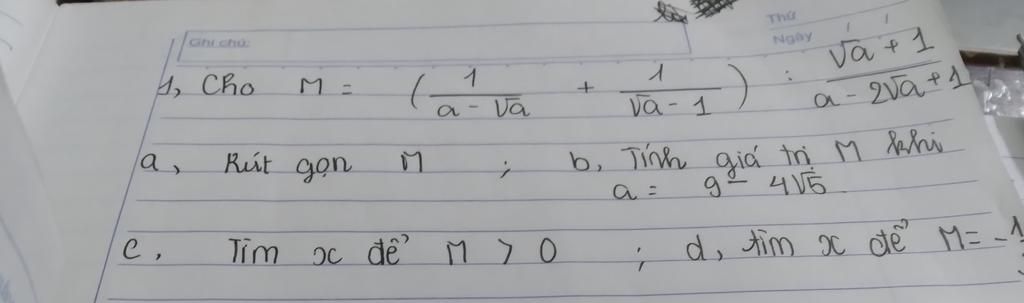 Thứ
Ghi chú: Ngày
1, Cho M = (1/(a - √a) + 1/(√a - 1)) : (√a + 1)/(a - 2√a + 1)
a, Rút gọn M ; b, Tính giá trị M khi
a = 9 - 4√5
c, Tìm x để M > 0 ; d, tìm x để M = -